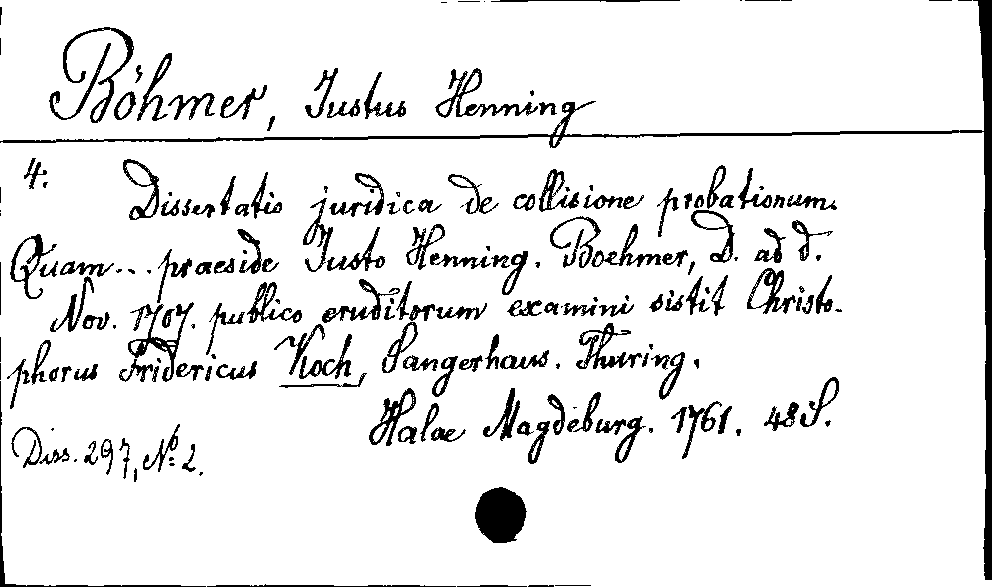 Böhmer, Justus Henning
4.
Dissertatio juridica de collisione probationum.
Quam... praeside Justo Henning. Boehmer, D. ad d.
Nov. 1707. publico eruditorum examini sistit Christo-
phorus Fridericus Koch, Sangerhaus. Thuring.
Halae Magdeburg. 1761. 48 S.
Diss. 297, No. 2.